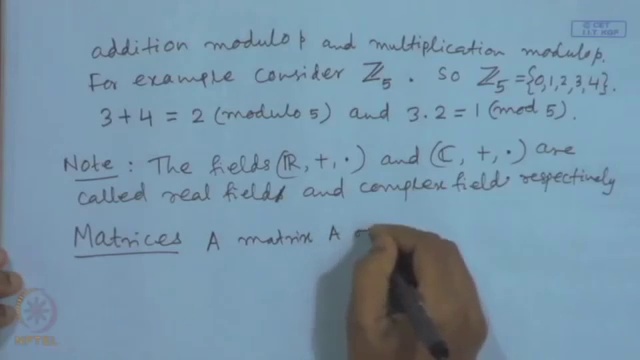 © CET
I.I.T. KGP
addition modulo p and multiplication modulo p.
For example consider ℤ₅ . So ℤ₅ = {0,1,2,3,4}.
3 + 4 = 2 (modulo 5) and 3 . 2 = 1 (mod 5).
Note : The fields (ℝ, +, ·) and (ℂ, +, ·) are
called real field and complex field respectively
Matrices A matrix A
NPTEL